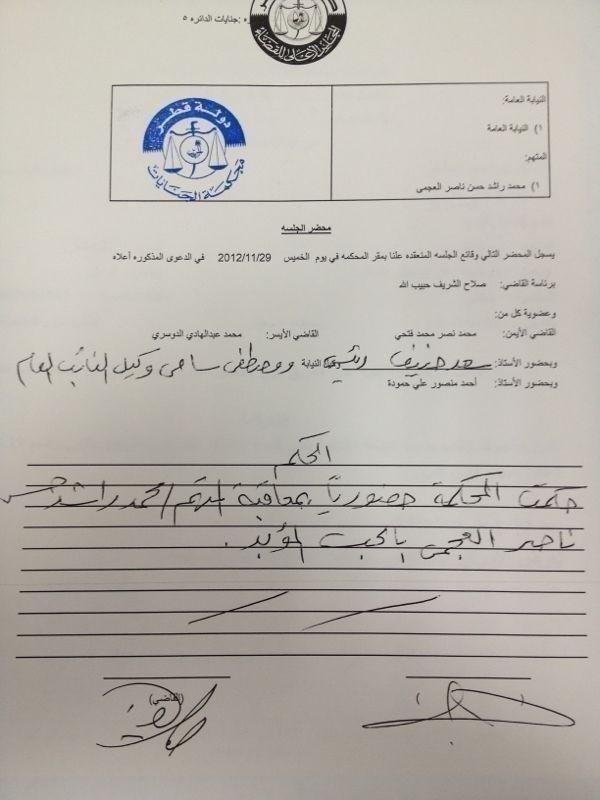 المجلس الأعلى للقضاء
ه :جنايات الدائره ٥
النيابة العامة:
١) النيابة العامة
المتهم:
١) محمد راشد حسن ناصر العجمى
دولة قطر
محكمة الجنايات
محضر الجلسه
يسجل المحضر التالي وقائع الجلسه المنعقده علنا بمقر المحكمه في يوم الخميس 2012/11/29 في الدعوى المذكوره أعلاه
برناسة القاضي: صلاح الشريف حبيب الله
وعضوية كل من:
القاضي الأيمن: محمد نصر محمد فتحي القاضي الأيسر: محمد عبدالهادي الدوسري
وبحضور الأستاذ: سعد النيابة ومصطفى سامى وكيل النائب العام
وبحضور الأستاذ: أحمد منصور علي حمودة
الحكم
حكمت المحكمة حضورياً بمعاقبة المتهم / محمد راشد حسن
ناصر العجمى بالحبس المؤبد .
(القاضي)